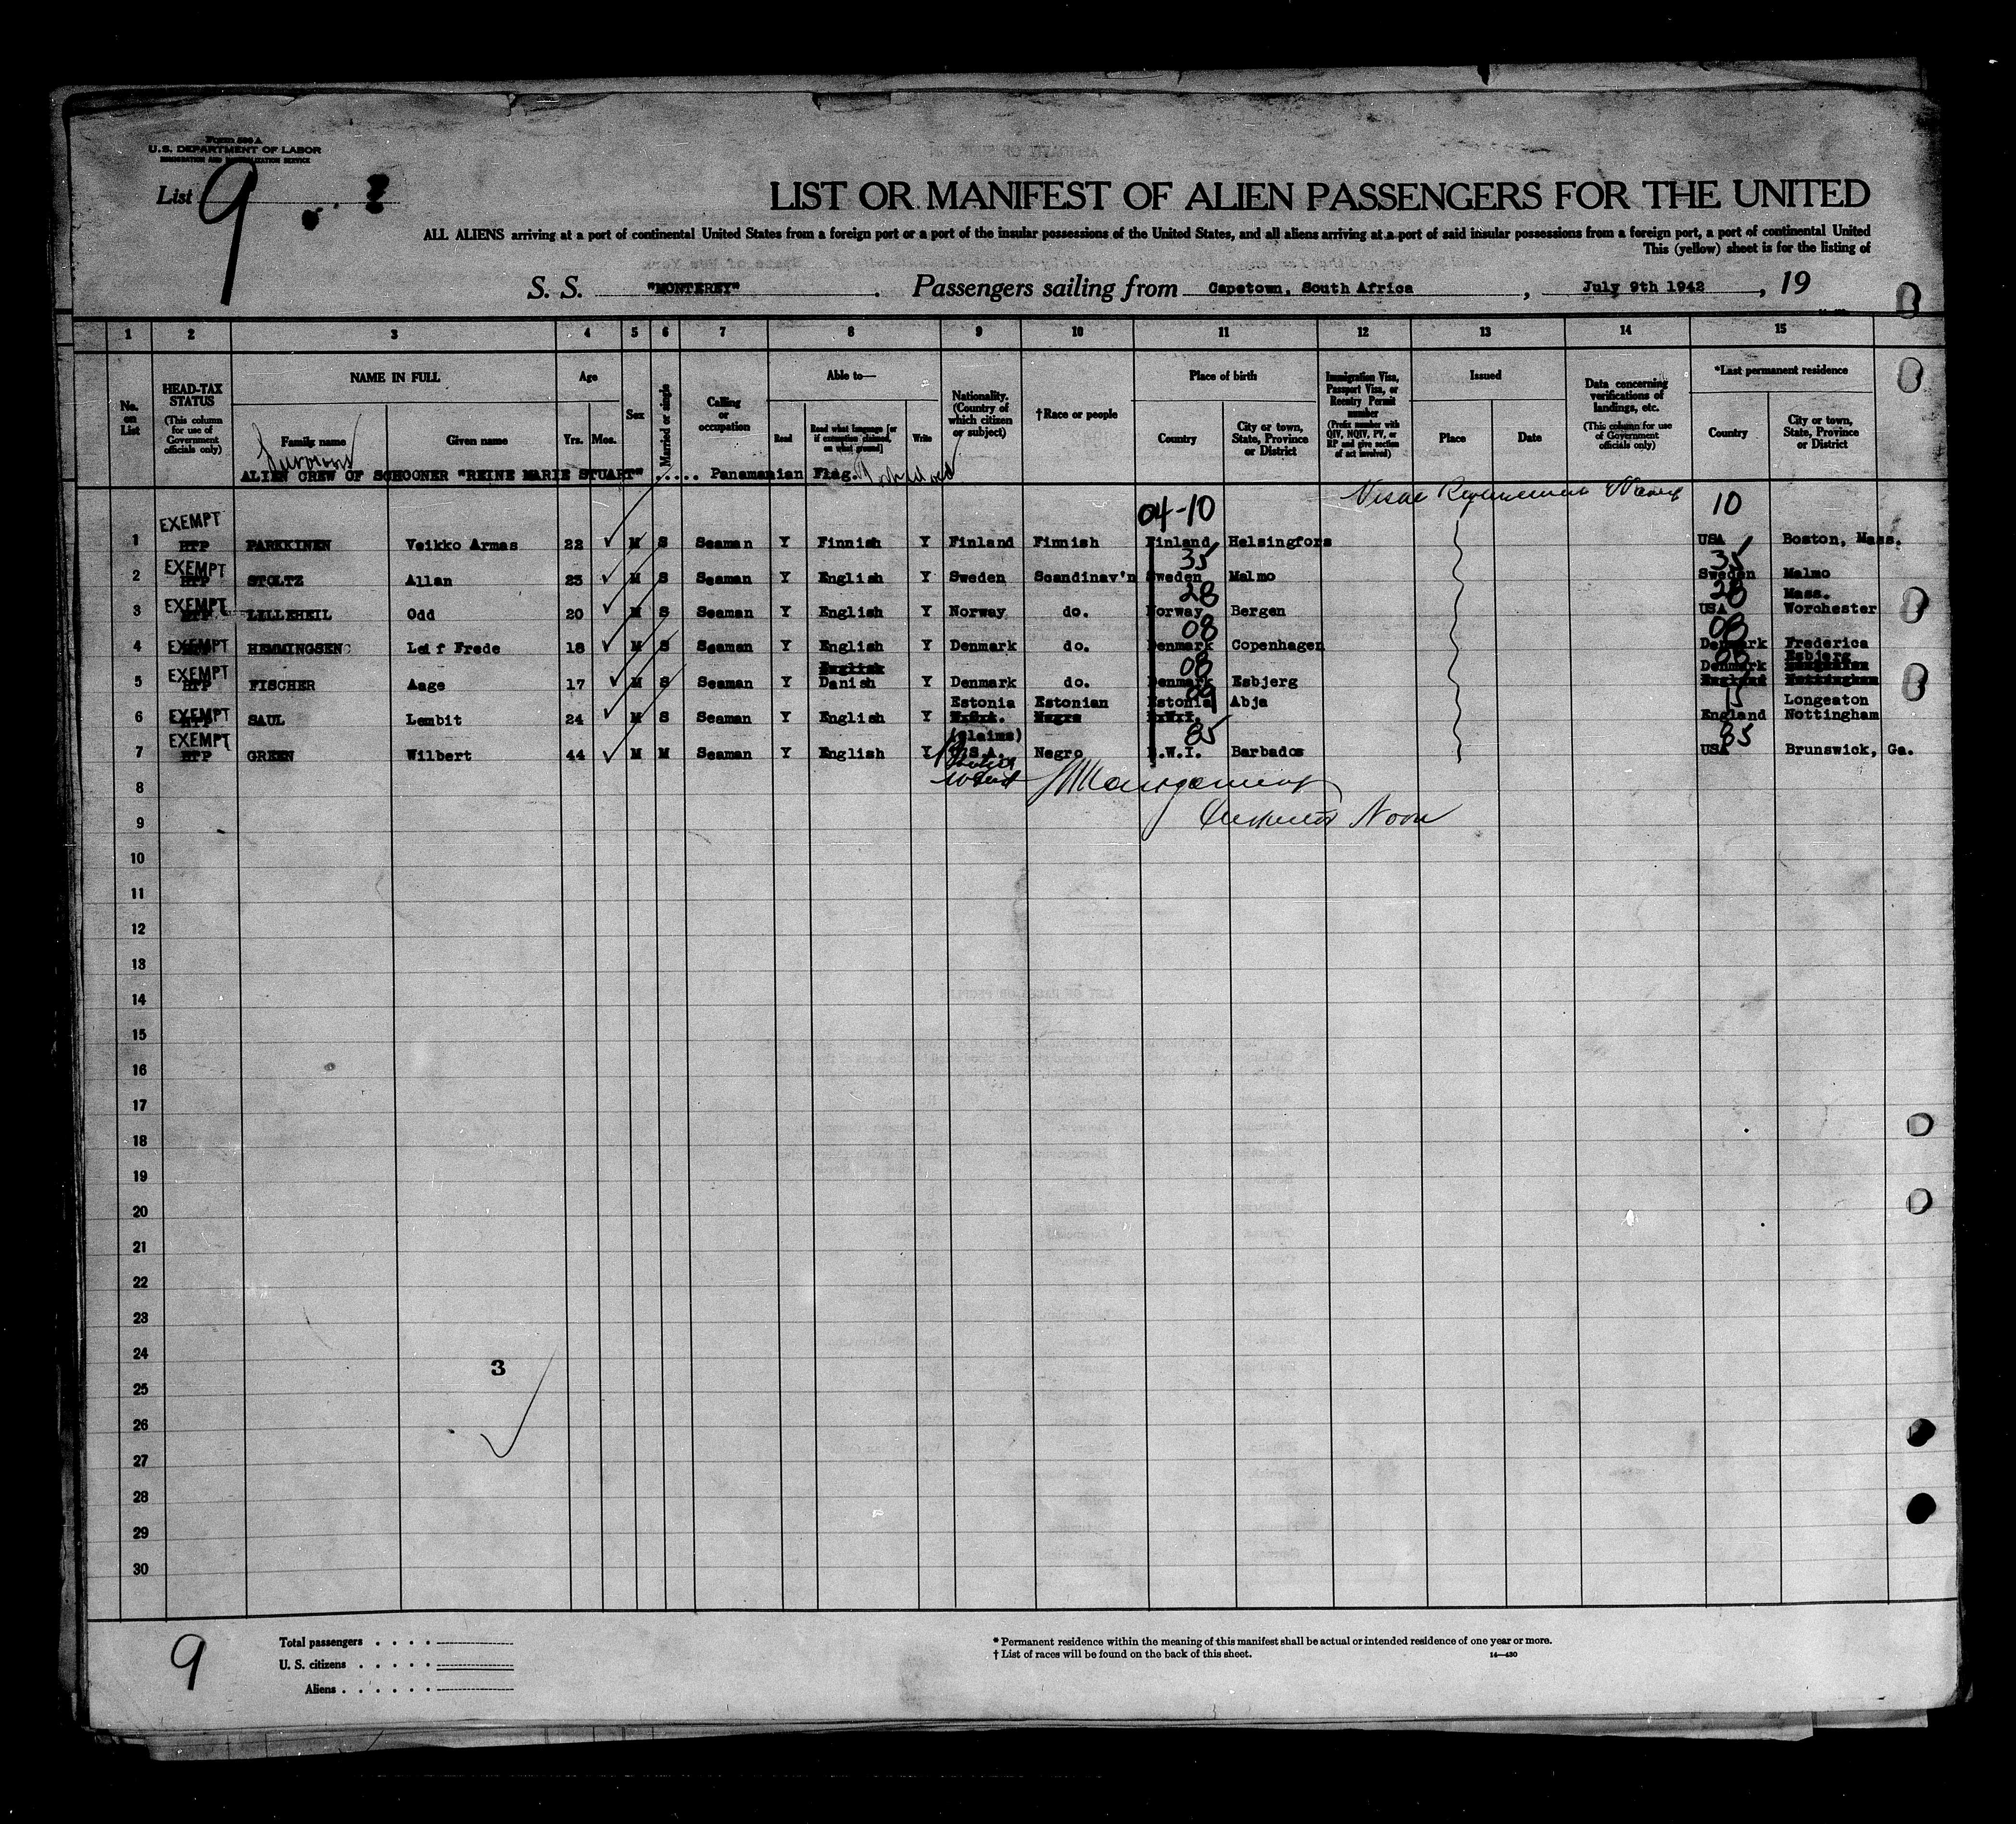 Form 500 A
U.S. DEPARTMENT OF LABOR
IMMIGRATION AND NATURALIZATION SERVICE
List 9
LIST OR MANIFEST OF ALIEN PASSENGERS FOR THE UNITED
ALL ALIENS arriving at a port of continental United States from a foreign port or a port of the insular possessions of the United States, and all aliens arriving at a port of said insular possessions from a foreign port, a port of continental United
This (yellow) sheet is for the listing of
S. S. "MONTEREY" Passengers sailing from Capetown, South Africa, July 9th 1942, 19
1 2 3 4 5 6 7 8 9 10 11 12 13 14 15
No. on List
HEAD-TAX STATUS (This column for use of Government officials only)
NAME IN FULL
Family name
Given name
Age
Yrs. Mos.
Sex
Married or single
Calling or occupation
Able to—
Read
Read what language [or if exemption claimed, on what ground]
Write
Nationality. (Country of which citizen or subject)
†Race or people
Place of birth
Country
City or town, State, Province or District
Immigration Visa, Passport Visa, or Reentry Permit number (Prefix number with QIV, NQIV, PV, or RP and give section of act involved)
Issued
Place
Date
Data concerning verifications of landings, etc. (This column for use of Government officials only)
*Last permanent residence
Country
City or town, State, Province or District
Survivors
ALIEN CREW OF SCHOONER "REINE MARIE STUART" ..... Panamanian Flag.
04-10 10
1 EXEMPT HTP PARKKINEN Veikko Armas 22 M S Seaman Y Finnish Y Finland Finnish Finland Helsingfors USA Boston, Mass.
35 35
2 EXEMPT HTP STOLTZ Allan 23 M S Seaman Y English Y Sweden Scandinav'n Sweden Malmo Sweden Malmo
28 28 Mass.
3 EXEMPT HTP LILLEHEIL Odd 20 M S Seaman Y English Y Norway do. Norway Bergen USA Worchester
08 08
4 EXEMPT HEMMINGSEN Leif Frede 18 M S Seaman Y English Y Denmark do. Denmark Copenhagen Denmark Frederica
English 08 08 Denmark Esbjerg
5 EXEMPT HTP FISCHER Aage 17 M S Seaman Y Danish Y Denmark do. Denmark Esbjerg England Nottingham
Estonia Estonian 09 Estonia Abja 15 Longeaton
6 EXEMPT HTP SAUL Lembit 24 M S Seaman Y English Y B.W.I. Negro B.W.I. England Nottingham
(Claims) 85 85
7 EXEMPT HTP GREEN Wilbert 44 M M Seaman Y English Y U.S.A. Negro B.W.I. Barbados USA Brunswick, Ga.
8
9
10
11
12
13
14
15
16
17
18
19
20
21
22
23
24
3
25
26
27
28
29
30
9
Total passengers
U. S. citizens
Aliens
* Permanent residence within the meaning of this manifest shall be actual or intended residence of one year or more.
† List of races will be found on the back of this sheet.
14—430